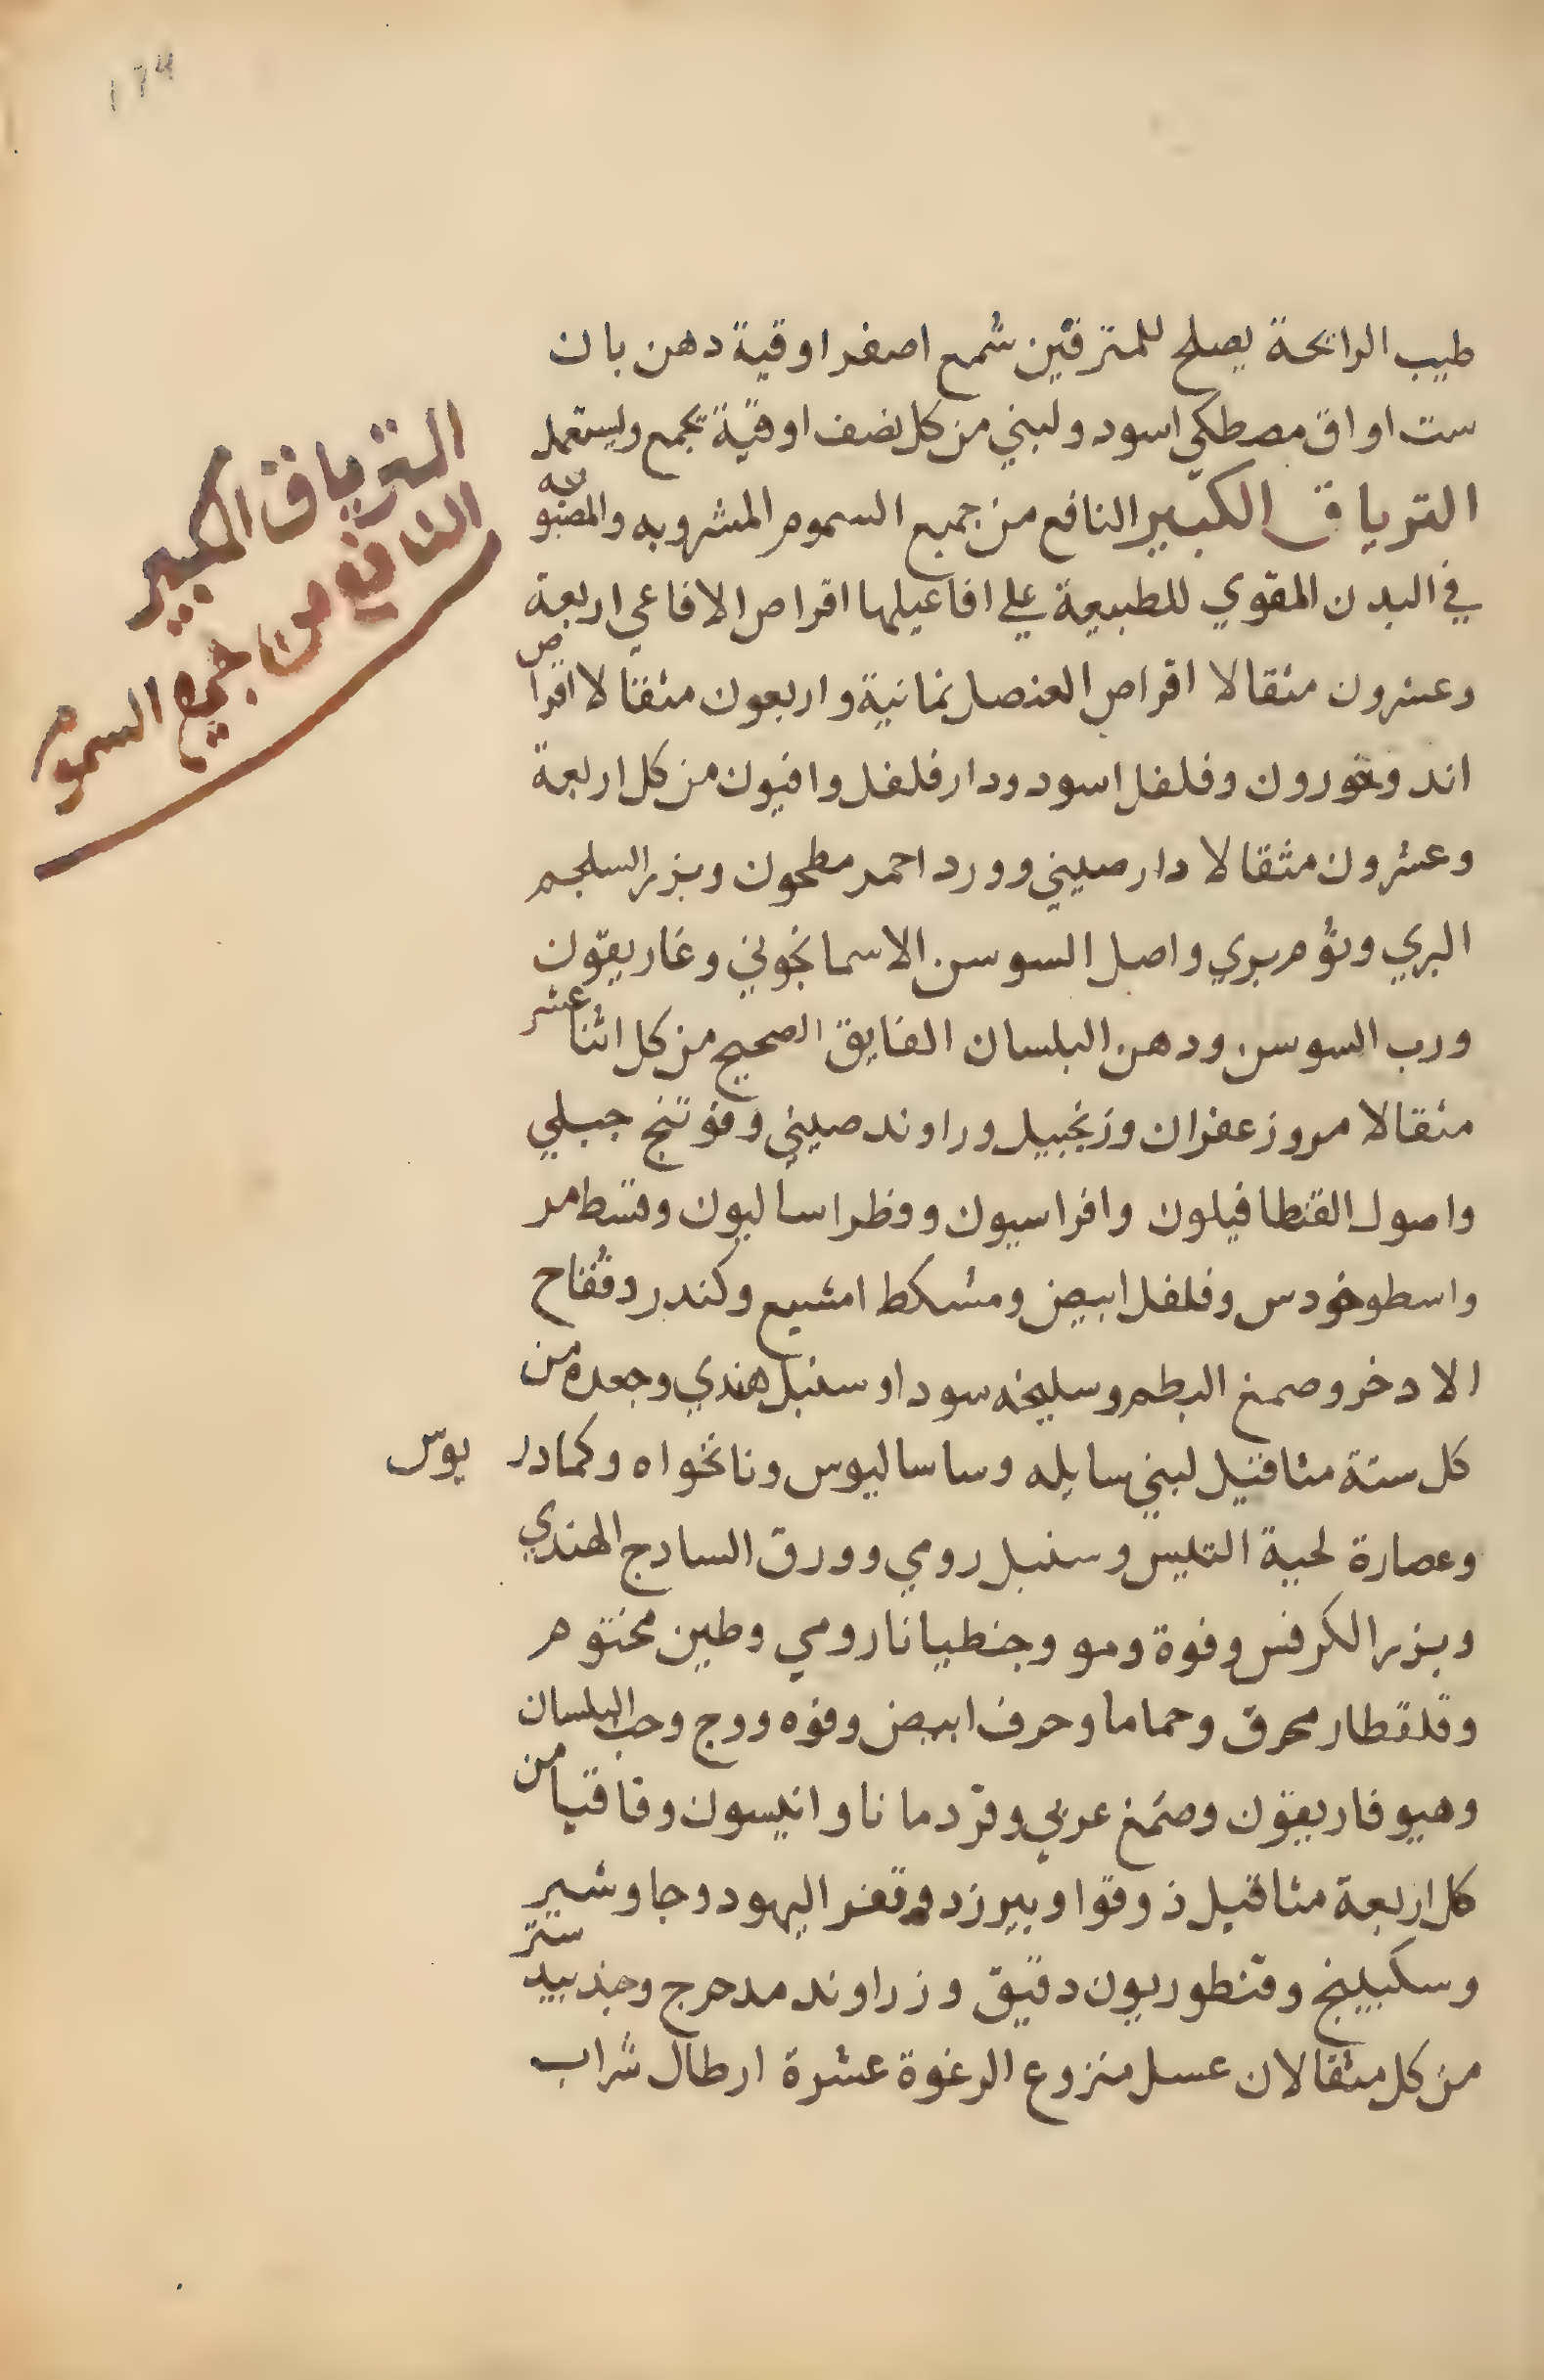 ١٦٩
طيب الرائحة يصلح للمترفين شمع اصفر اوقية دهن بان
ست اواق مصطكي اسود ولبني من كل نصف اوقية يجمع ويستعمل
الترياق الكبير النافع من جميع السموم المشروبه والمصبوبه
في البدن المقوي للطبيعة علي افاعيلها اقراص الافاعي اربعة
وعشرون مثقالا اقراص العنصل ثمانية واربعون مثقالا اقراص
اندوخورون وفلفل اسود ودارفلفل وافيون من كل اربعة
وعشرون مثقالا دارصيني وورد احمر مطحون وبزر السلجم
البري وثوم بري واصل السوسن الاسمانجوني وغاريقون
ورب السوسن ودهن البلسان الفايق الصحيح من كل اثنا عشر
مثقالا مر وزعفران وزنجبيل وراوند صيني وفوتنج جبلي
واصول القنطافيلون وافراسيون وفطراساليون وقسط مر
واسطوخودس وفلفل ابيض ومشكطامشيع وكندر وفقاح
الادخر وصمغ البطم وسليخه سودا وسنبل هندي وجعده من
كل ستة مثاقيل لبني سايله وساساليوس ونانخواه وكمادريوس
وعصارة لحية التيس وسنبل رومي وورق السادج الهندي
وبزر الكرفس وفوة ومو وجنطيانا رومي وطين مختوم
وقلقطار محرق وحماما وحرف ابيض وفوه ووج وحب البلسان
وهيوفاريقون وصمغ عربي وقردمانا وانيسون وقاقيا من
كل اربعة مثاقيل ذوقوا وبيرزد وقفر اليهود وجاوشير
وسكبينج وقنطوريون دقيق وزراوند مدحرج وجندبيدستر
من كل مثقالان عسل منزوع الرغوة عشرة ارطال شراب
الترياق الكبير
النافع من جميع السموم